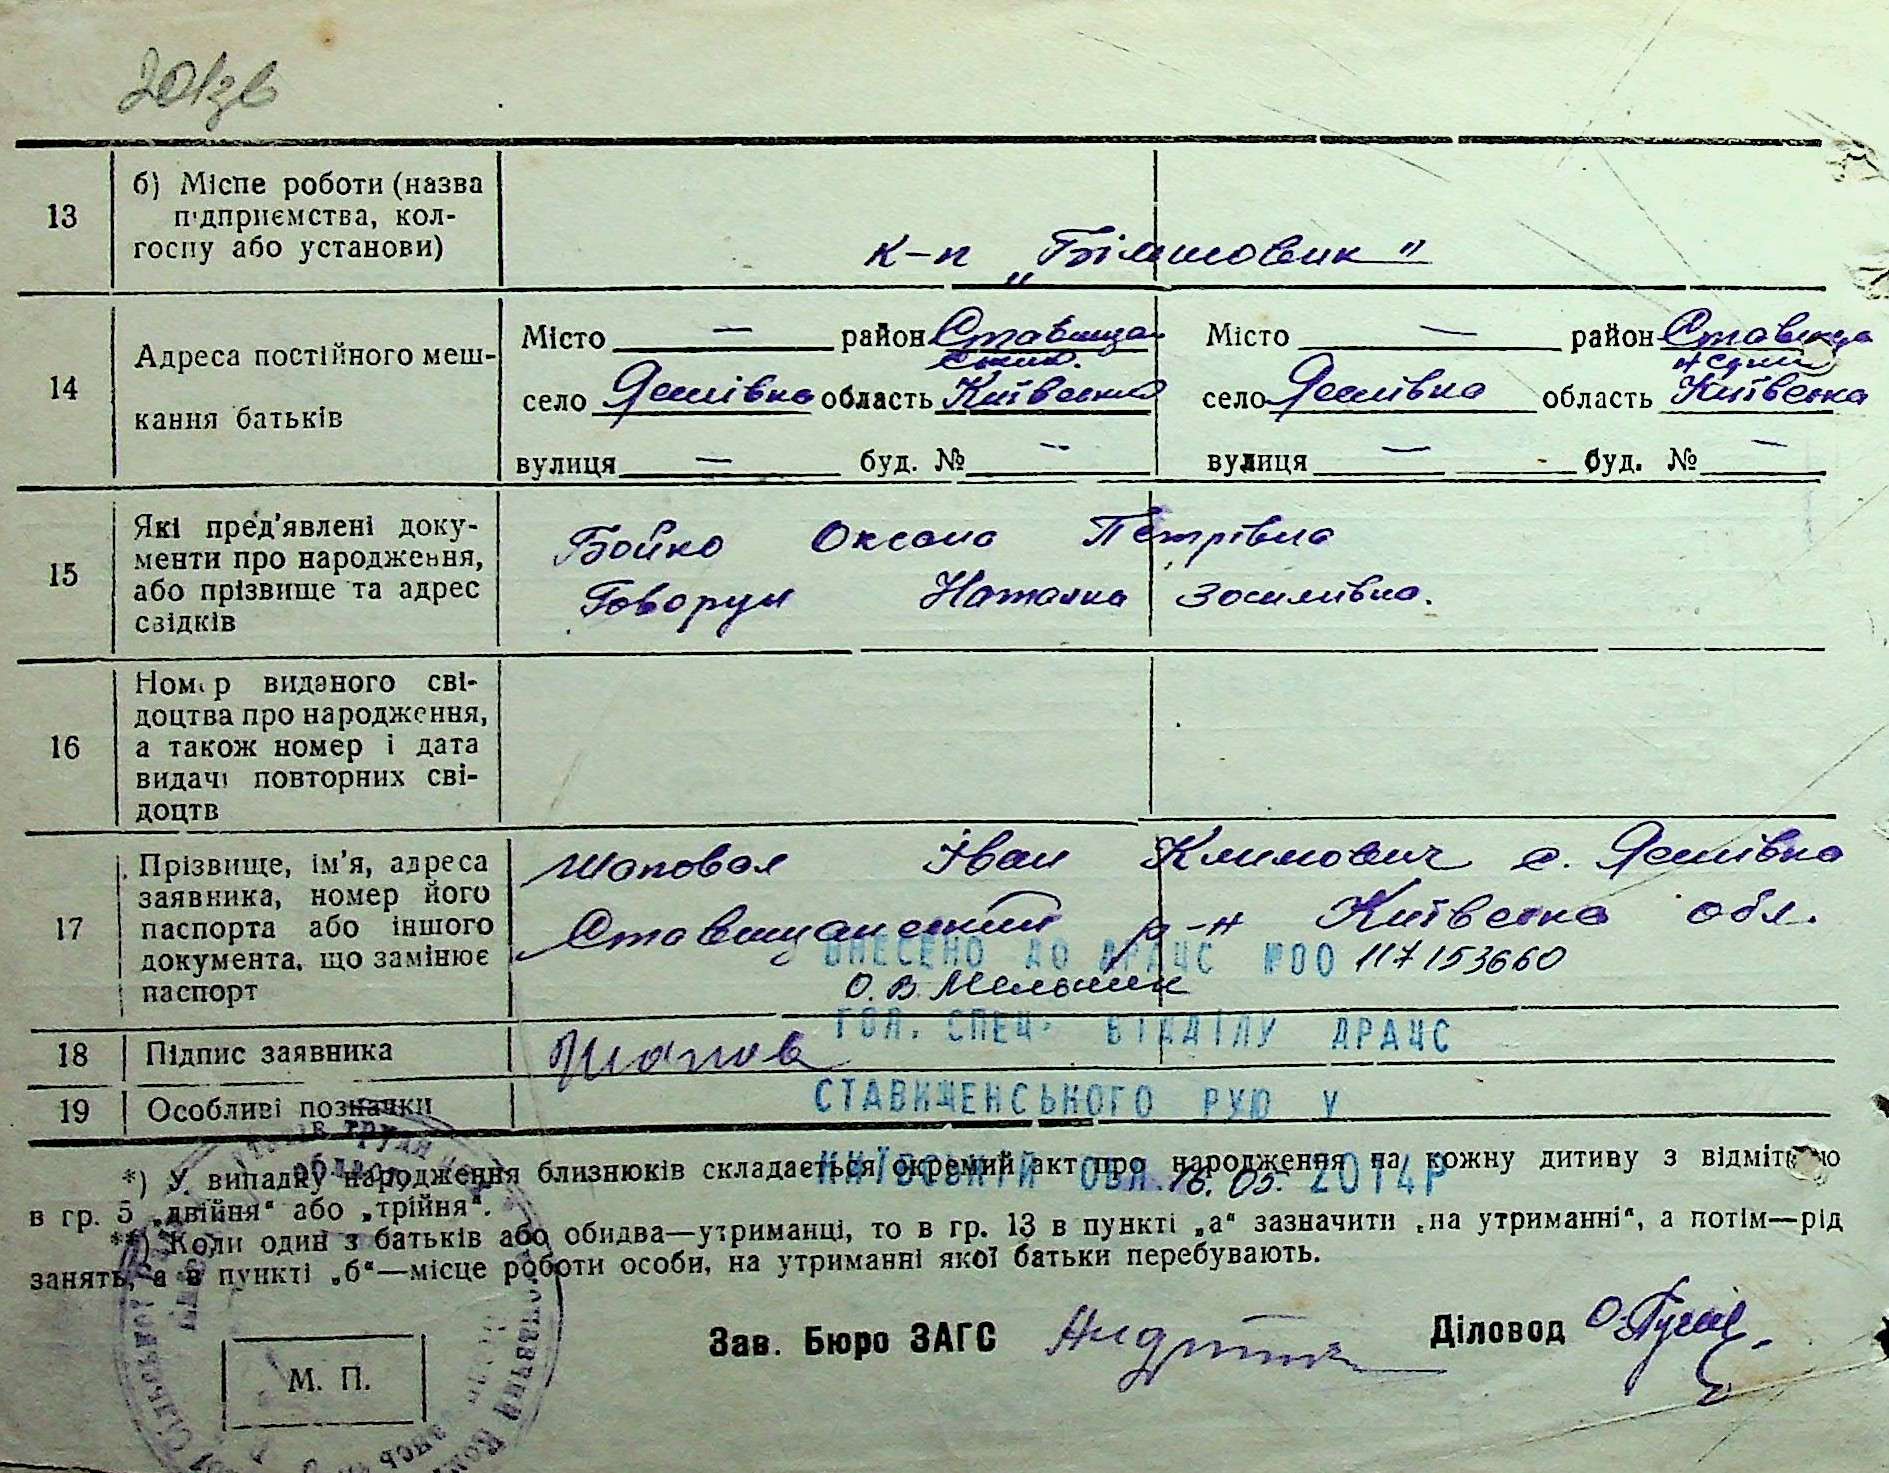 13
б) Місце роботи (назва
підприємства, кол-
госпу або установи)
к-п „Більшовик"
14
Адреса постійного меш-
кання батьків
Місто — район Ставищан
ський.
село Ясинівка область Київська
вулиця — буд. № —
Місто — район Ставища
село Ясинівка область Київська
вулиця — буд. № —
15
Які пред'явлені доку-
менти про народження,
або прізвище та адрес
свідків
Бойко Оксана Петрівна
Говорун Наталка Зосимівна.
16
Номер виданого сві-
доцтва про народження,
а також номер і дата
видачі повторних сві-
доцтв
17
Прізвище, ім'я, адреса
заявника, номер його
паспорта або іншого
документа, що замінює
паспорт
Шаповал Іван Климович с. Ясинівка
Ставищанський р-н Київська обл.
ВНЕСЕНО ДО ДРАЦС №00 117153660
О.В. Мельник
ГОЛ. СПЕЦ. ВІДДІЛУ ДРАЦС
СТАВИЩЕНСЬКОГО РУЮ У
КИЇВСЬКІЙ ОБЛ. 16.05. 2014Р
18
Підпис заявника
Шапов
19
Особливі позначки
*) У випадку народження близнюків складається окремий акт про народження на кожну дитину з відміткою
в гр. 5 „двійня“ або „трійня“.
**) Коли один з батьків або обидва—утриманці, то в гр. 13 в пункті „а“ зазначити „на утриманні“, а потім—рід
занять, а в пункті „б“—місце роботи особи, на утриманні якої батьки перебувають.
Зав. Бюро ЗАГС
Діловод
М. П.